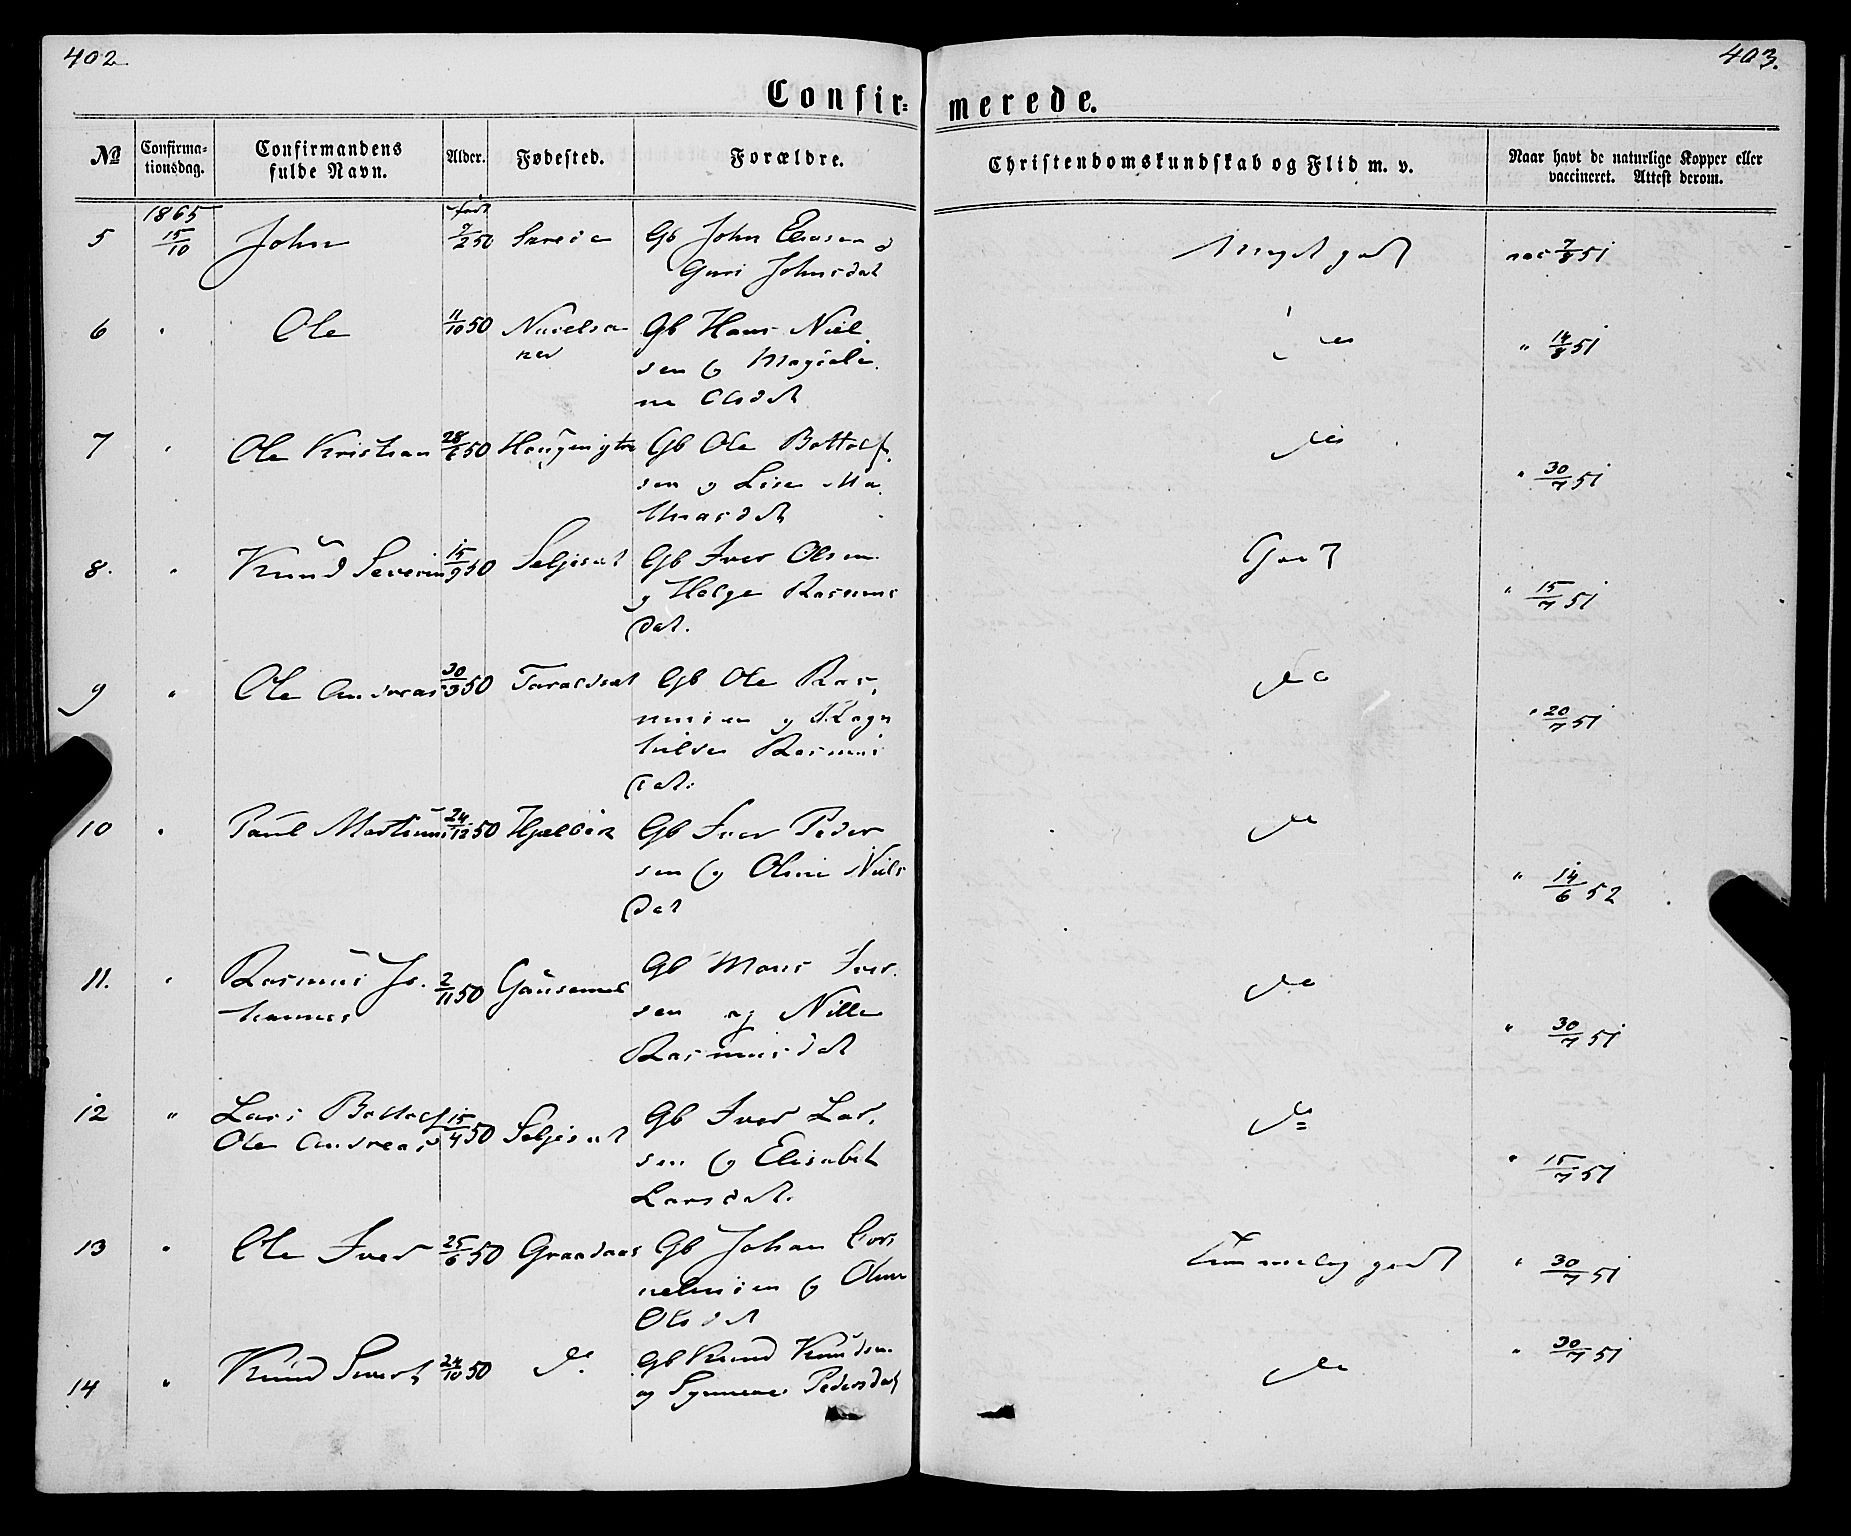 402
403.
Confir=
merede.
No
Confirma-
tionsdag.
Confirmandens
fulde Navn.
Alder.
Fødested.
Forældre.
Christendomskundskab og Flid m. v.
Naar havt de naturlige Kopper eller
vaccineret. Attest derom.
1865
født
5 15/10 John 9/2 50 Gb John
Guri Johnsdat
Meget godt
vac 7/8 51
6 Ole 11/10 50 Gb Hans Niel
sen og Magdale
ne Olsdat
do
" 14/8 51
7 Ole Kristian 28/6 50 Gb Ole Bottolf
sen og Lise Ma
thiasdat
do
" 30/7 51
8. " Knud Severin 15/9 50 Seljeset Gb Iver Olsen
og Helge Rasmus
dat.
Godt
" 15/7 51
9 " Ole Andreas 30/3 50 Taraldset Gb Ole Ras
musen og Ragn
hilde Rasmus
dat.
do
" 20/7 51
10 " Paul Martinus 24/12 50 Gb Iver Peder
sen og Oline Niels
dat
do
" 14/6 52
11. " Rasmus Jo.
hannes 2/11 50 Gausemel Gb Mons Iver
sen og Nille
Rasmusdat
do
" 30/7 51
12 " Lars Bottolf
Ole Andreas 15/4 50 Seljeset Gb Iver Lar
sen og Elisabet
Larsdat.
do
" 15/7 51
13 " Ole Iver 25/6 50 Graadaas Gb Johan Cor
neliusen og Oline
Olsdat
Temmelig godt
" 30/7 51
14 " Knud Sivert 24/10 50 do. Gb Knud Knudsen
og Synneve Pedersdat
do
" 30/7 51